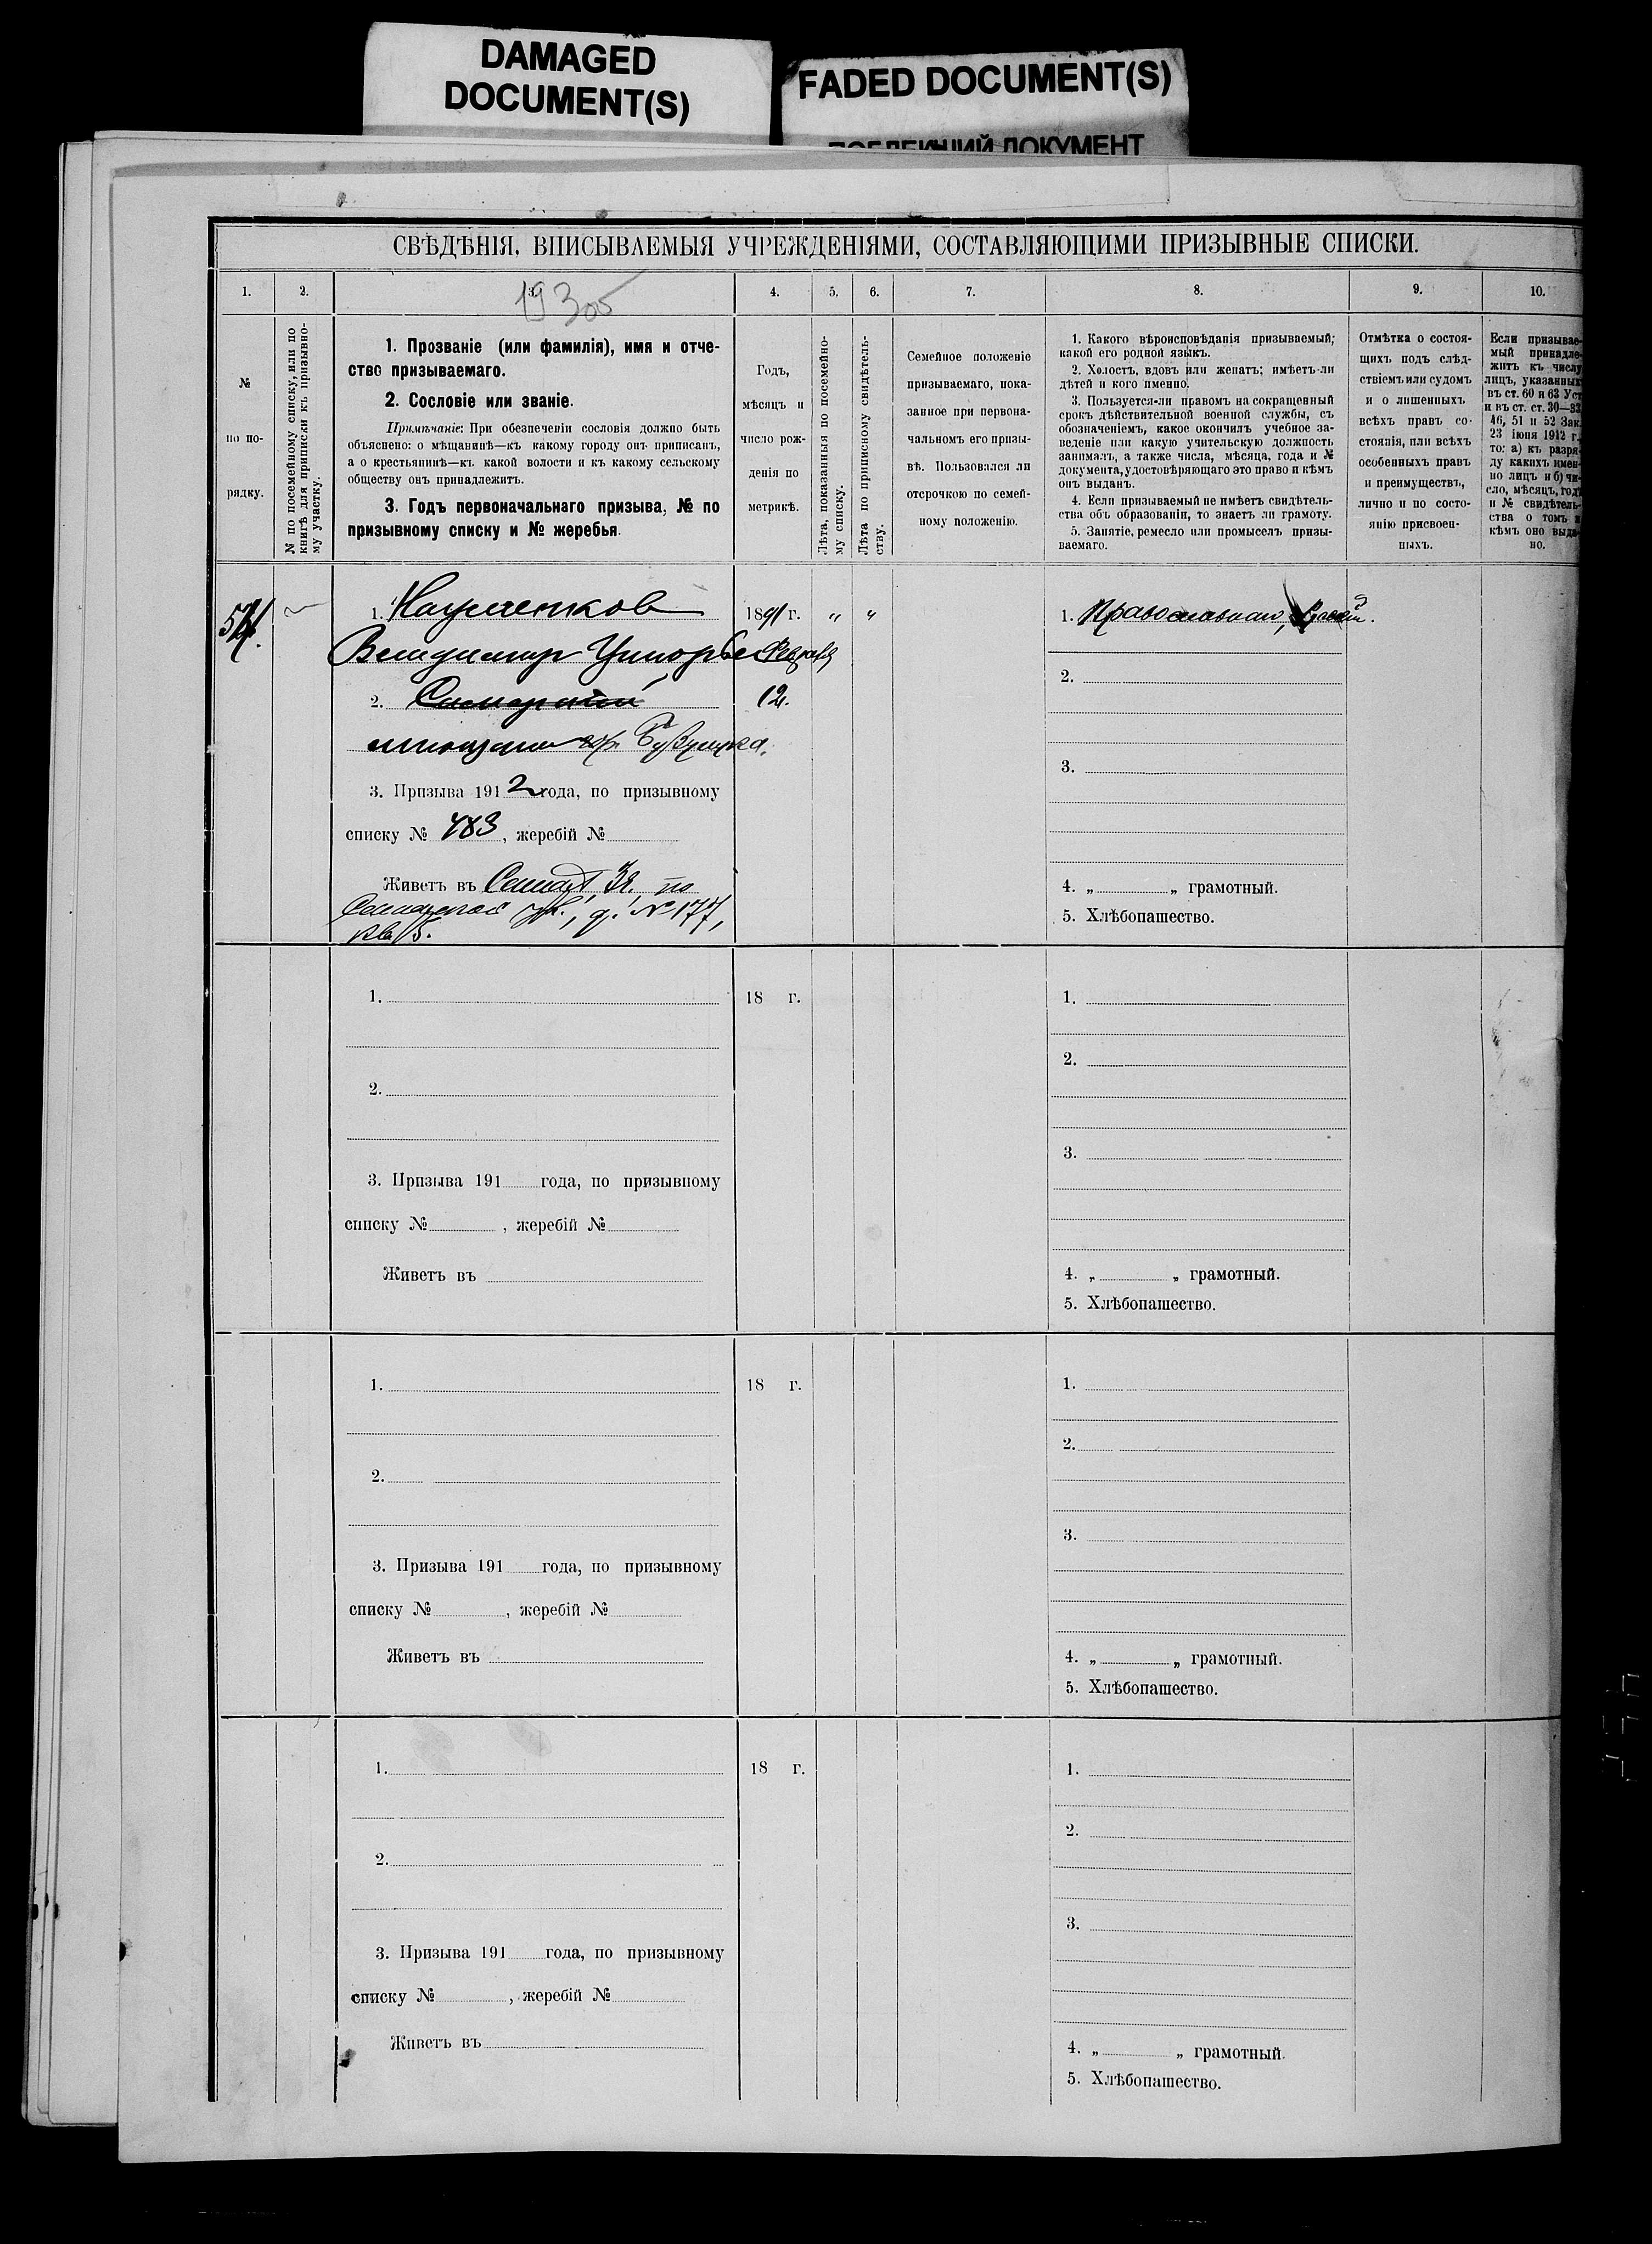 DAMAGED
DOCUMENT(S)
FADED DOCUMENT(S)
ДОКУМЕНТ
СВѢДѢНІЯ, ВПИСЫВАЕМЫЯ УЧРЕЖДЕНІЯМИ, СОСТАВЛЯЮЩИМИ ПРИЗЫВНЫЕ СПИСКИ.
1. 2. 3. 4. 5. 6. 7. 8. 9. 10.
№
по по-
рядку.
№ по посемейному списку, или по
книгѣ для приписки къ призывно-
му участку.
1. Прозваніе (или фамилія), имя и отче-
ство призываемаго.
2. Сословіе или званіе.
Примѣчаніе: При обезпеченіи сословія должно быть
объяснено: о мѣщанинѣ—къ какому городу онъ приписанъ,
а о крестьянинѣ—къ какой волости и къ какому сельскому
обществу онъ принадлежитъ.
3. Годъ первоначальнаго призыва, № по
призывному списку и № жеребья.
Годъ,
мѣсяцъ и
число рож-
денія по
метрикѣ.
Лѣта, показанныя по посемейно-
му списку.
Лѣта по приписному свидѣтель-
ству.
Семейное положеніе
призываемаго, пока-
занное при первона-
чальномъ его призы-
вѣ. Пользовался ли
отсрочкою по семей-
ному положенію.
1. Какого вѣроисповѣданія призываемый;
какой его родной языкъ.
2. Холостъ, вдовъ или женатъ; имѣетъ-ли
дѣтей и кого именно.
3. Пользуется-ли правомъ на сокращенный
срокъ дѣйствительной военной службы, съ
обозначеніемъ, какое окончилъ учебное за-
веденіе или какую учительскую должность
занималъ, а также числа, мѣсяца, года и №
документа, удостовѣряющаго это право и кѣмъ
онъ выданъ.
4. Если призываемый не имѣетъ свидѣтель-
ства объ образованіи, то знаетъ ли грамоту.
5. Занятіе, ремесло или промыселъ призы-
ваемаго.
Отмѣтка о состоя-
щихъ подъ слѣд-
ствіемъ или судомъ
и о лишенныхъ
всѣхъ правъ со-
стоянія, или всѣхъ
особенныхъ правъ
и преимуществъ,
лично и по состо-
янію присвоен-
ныхъ.
Если призывае-
мый принадле-
житъ къ числу
лицъ, указанныхъ
въ ст. 60 и 63 Уст.
и въ ст. ст. 30—33
46, 51 и 52 Зак.
23 іюня 1912 г.,
то: а) къ разря-
ду какихъ имен-
но лицъ и б) чи-
сло, мѣсяцъ, годъ
и № свидѣтель-
ства о томъ и
кѣмъ оно выда-
но.
1. 1891 г. " " 1. Православнаго,
Владимир
2. Самарский 12.
2.
3. Призыва 1912 года, по призывному
3.
списку № 483, жеребій №
Живетъ въ
Самарской ул., д. № 177,
кв. 5.
4. „ „ грамотный.
5. Хлѣбопашество.
1. 18 г. 1.
2.
2.
3.
3. Призыва 191 года, по призывному
списку № , жеребій №
Живетъ въ
4. „ „ грамотный.
5. Хлѣбопашество.
1. 18 г. 1.
2.
2.
3.
3. Призыва 191 года, по призывному
списку № , жеребій №
Живетъ въ
4. „ „ грамотный.
5. Хлѣбопашество.
1. 18 г. 1.
2.
2.
3.
3. Призыва 191 года, по призывному
списку № , жеребій №
Живетъ въ
4. „ „ грамотный.
5. Хлѣбопашество.